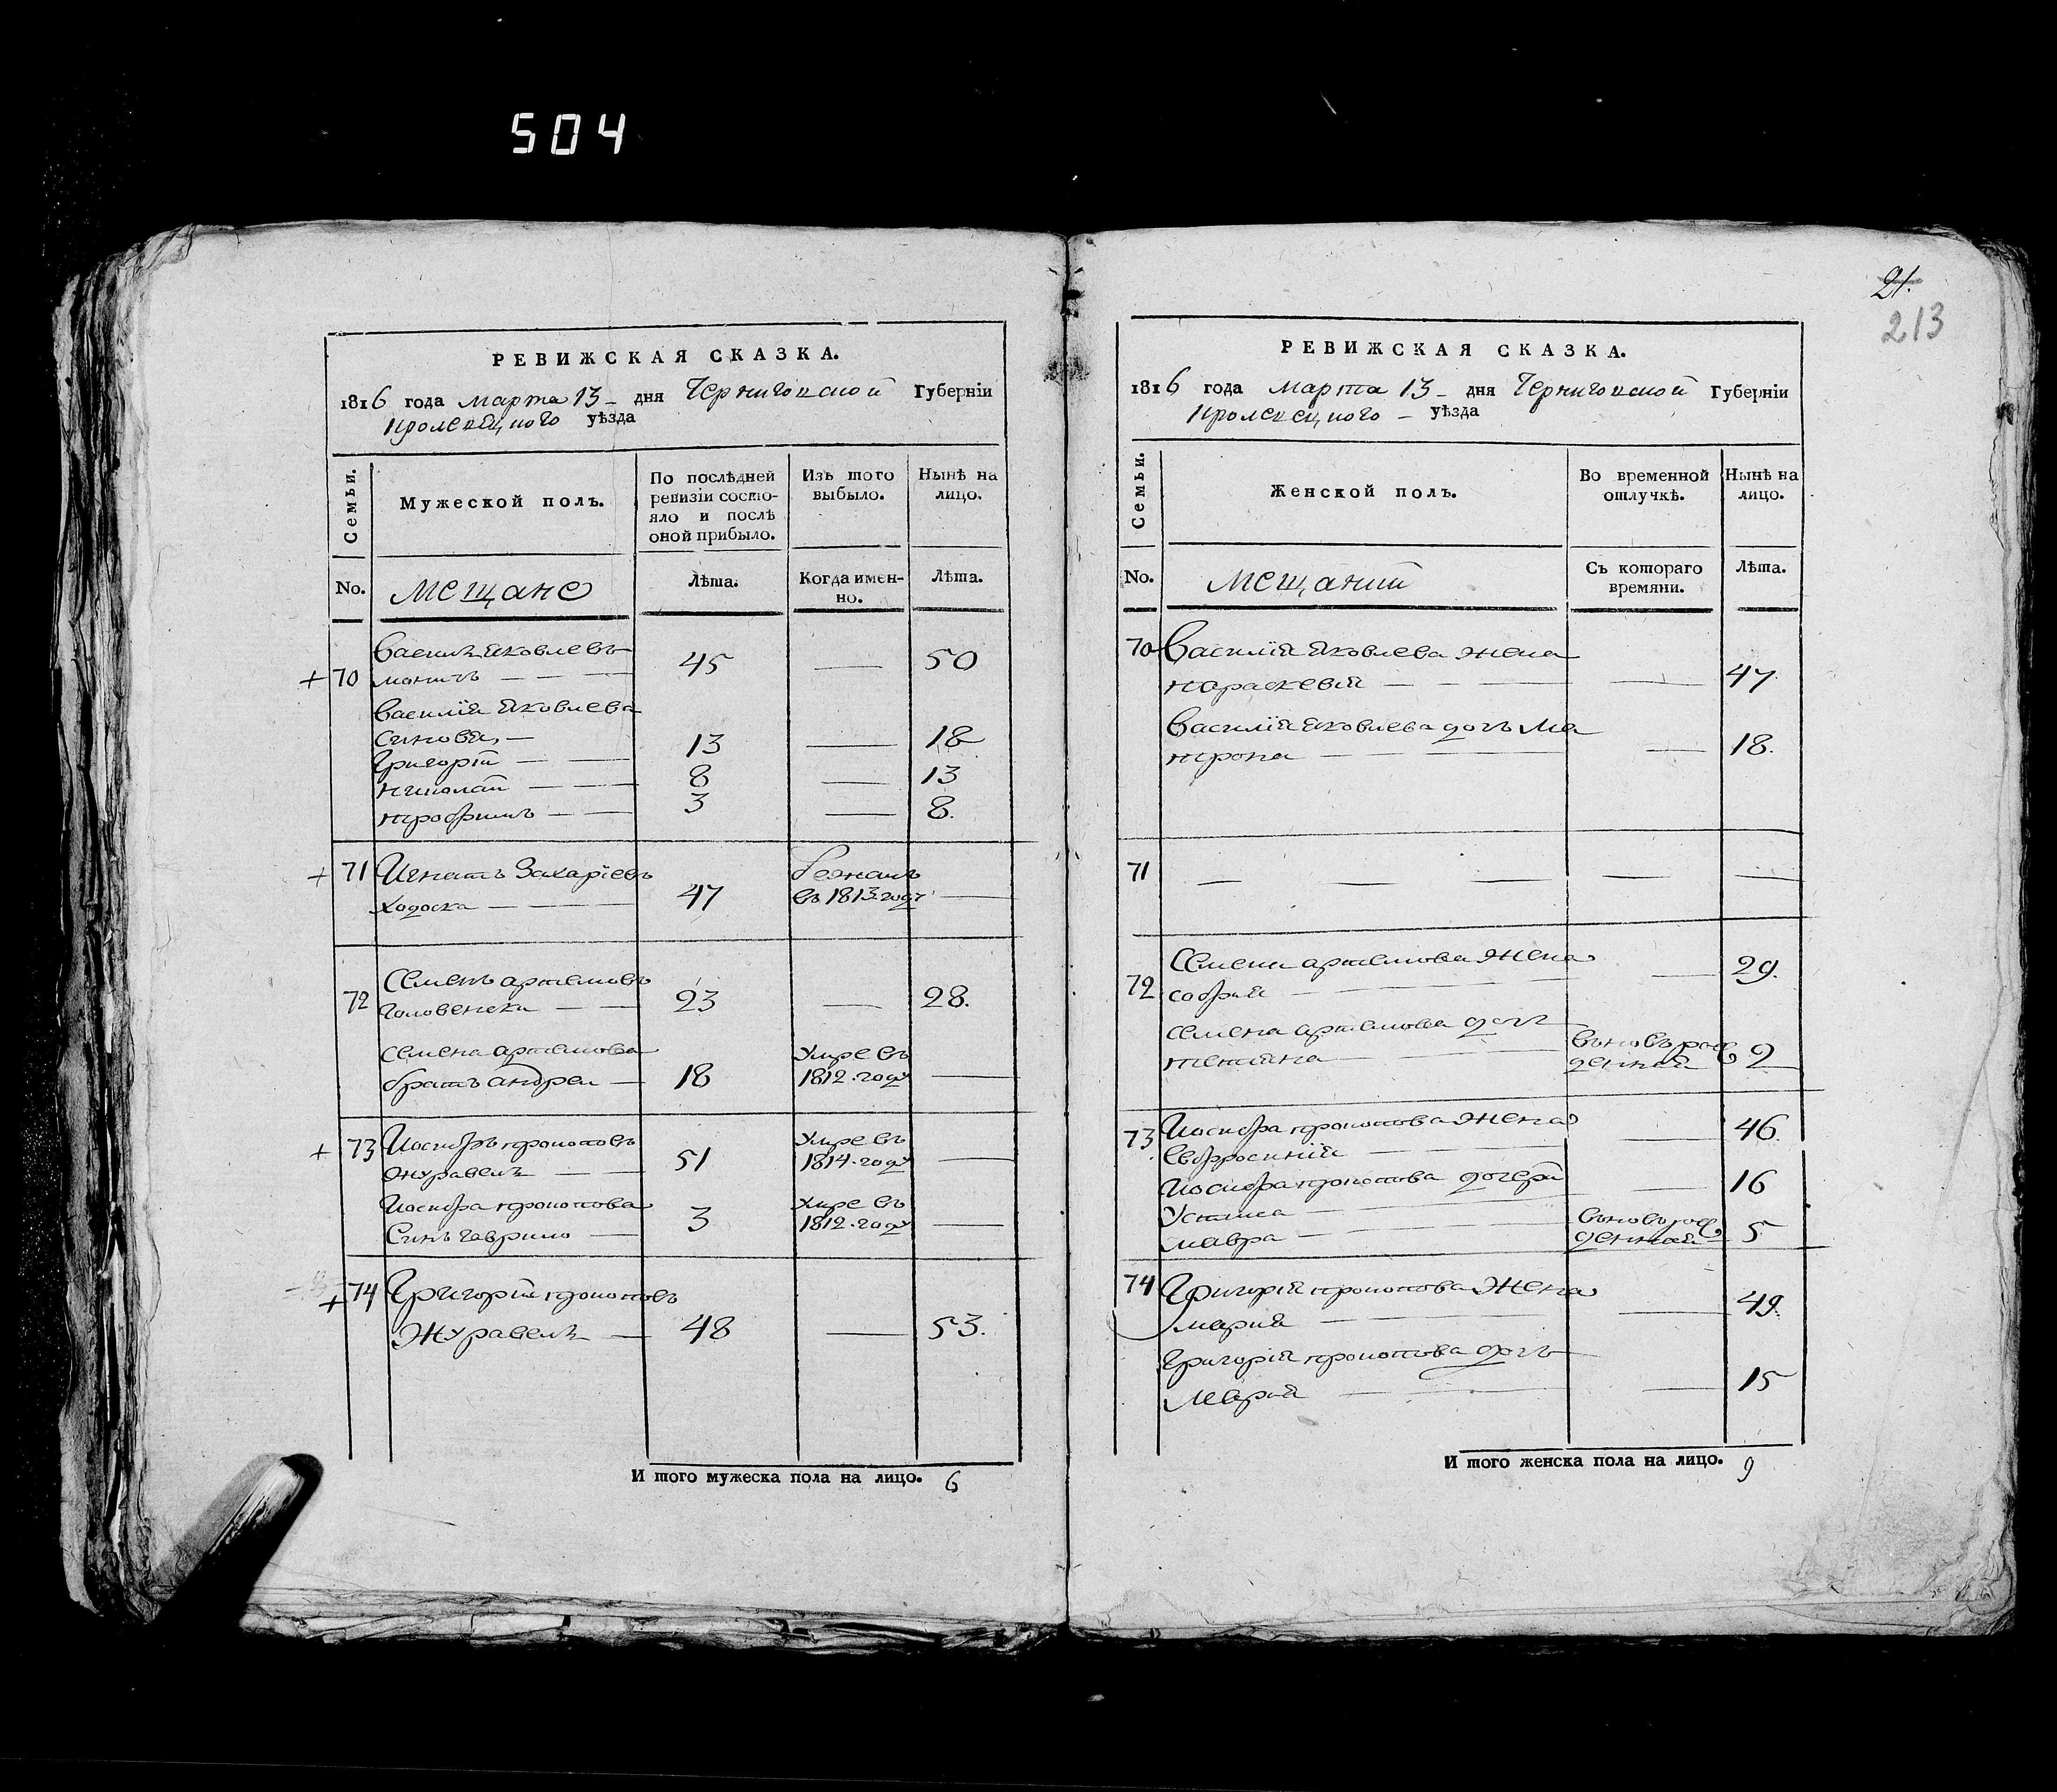 504
РЕВИЖСКАЯ СКАЗКА.
1816 года марта 13 - дня Черниговской Губерніи
Кролевецкого уѣзда
Семьи.
Мужеской полъ.
По послѣдней ревизіи состояло и послѣ оной прибыло.
Изъ того выбыло.
Нынѣ на лицо.
No.
мещане
Лѣта.
Когда именно.
Лѣта.
+ 70 Василь Яковлевъ
45 — 50
Василія Яковлева
синовя,
Григорій — 13 — 18
Николай — 8 — 13
трофимъ — 3 — 8.
+ 71 Игнатъ Захаріевъ
ходоска — 47 бежалъ въ 1813 году —
72 Семенъ артемовъ
23 — 28.
семена артемова
братъ андрей — 18 Умре въ 1812 году —
+ 73 Иосифъ прокоповъ
журавель — 51 Умре въ 1814 году —
Иосифа прокопова
Синъ гаврило — 3 Умре въ 1812 году —
+ 74 Григорій прокоповъ
Журавель — 48 — 53.
И того мужеска пола на лицо. 6
21.
213
РЕВИЖСКАЯ СКАЗКА.
1816 года марта 13 - дня Черниговской Губерніи
Кролевецкого - уѣзда
Семьи.
Женской полъ.
Во временной отлучкѣ.
Нынѣ на лицо.
No.
мещаний
Съ котораго времяни.
Лѣта.
70 Василія Яковлева жена
параскевія — — 47
Василія Яковлева дочъ ма
трона — — 18.
71 — — — — —
72 Семена артемова жена
софия — — 29.
семена артемова дочъ
татияна — вновь рожденная 2
73 Иосифа прокопова жена
Евфросинія — — 46.
Иосифа прокопова дочери
Устина — — 16
мавра — вновь рожденная 5
74 Григорія прокопова Жена
мария — — 49.
Григорія прокопова дочъ
Мария — — 15
И того женска пола на лицо. 9